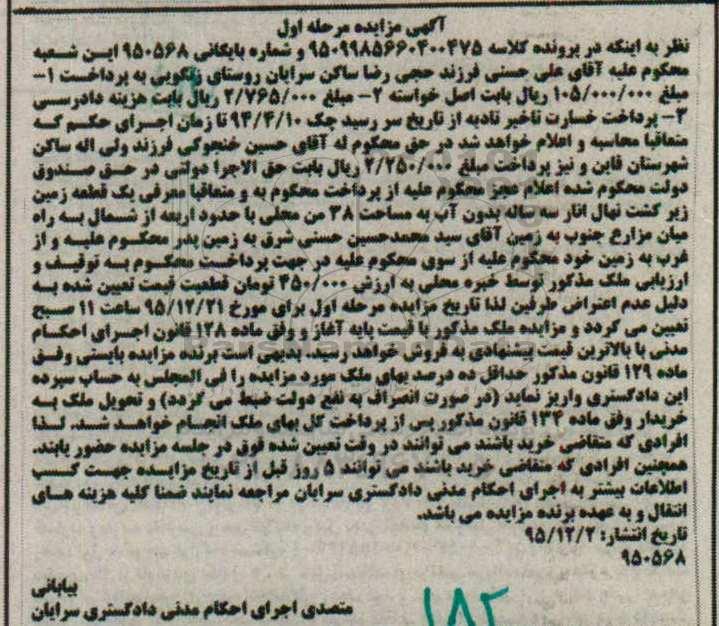 آگهی مزایده مرحله اول
نظر به اینکه در پرونده کلاسه ۹۵۰۹۹۸۵۶۶۰۴۰۰۴۷۵ و شماره بایگانی ۹۵۰۵۶۸ این شعبه
محکوم علیه آقای علی حسنی فرزند حجی رضا ساکن سرایان روستای زنگویی به پرداخت ۱-
مبلغ ۱۰۵/۰۰۰/۰۰۰ ریال بابت اصل خواسته ۲- مبلغ ۲/۷۶۵/۰۰۰ ریال بابت هزینه دادرسی
۳- پرداخت خسارت تاخیر تادیه از تاریخ سر رسید چک ۹۴/۴/۱۰ تا زمان اجرای حکم که
متعاقبا محاسبه و اعلام خواهد شد در حق محکوم له آقای حسین خنجوکی فرزند ولی اله ساکن
شهرستان قاین و نیز پرداخت مبلغ ۲/۲۵۰/۰۰۰ ریال بابت حق الاجرا دولتی در حق صندوق
دولت محکوم شده اعلام عجز محکوم علیه از پرداخت محکوم به و متعاقبا معرفی یک قطعه زمین
زیر کشت نهال انار سه ساله بدون آب به مساحت ۳۸ من محلی با حدود اربعه از شمال به راه
میان مزارع جنوب به زمین آقای سید محمدحسین حسنی شرق به زمین پدر محکوم علیه و از
غرب به زمین خود محکوم علیه از سوی محکوم علیه در جهت پرداخت محکوم به توقیف و
ارزیابی ملک مذکور توسط خبره محلی به ارزش ۴۵۰/۰۰۰ تومان قطعیت قیمت تعیین شده به
دلیل عدم اعتراض طرفین لذا تاریخ مزایده مرحله اول برای مورخ ۹۵/۱۲/۲۱ ساعت ۱۱ صبح
تعیین می گردد و مزایده ملک مذکور با قیمت پایه آغاز و وفق ماده ۱۲۸ قانون اجرای احکام
مدنی با بالاترین قیمت پیشنهادی به فروش خواهد رسید. بدیهی است برنده مزایده بایستی وفق
ماده ۱۲۹ قانون مذکور حداقل ده درصد بهای ملک مورد مزایده را فی المجلس به حساب سپرده
این دادگستری واریز نماید (در صورت انصراف به نفع دولت ضبط می گردد) و تحویل ملک به
خریدار وفق ماده ۱۳۴ قانون مذکور پس از پرداخت کل بهای ملک انجام خواهد شد. لذا
افرادی که متقاضی خرید باشند می توانند در وقت تعیین شده فوق در جلسه مزایده حضور یابند.
همچنین افرادی که متقاضی خرید باشند می توانند ۵ روز قبل از تاریخ مزایده جهت کسب
اطلاعات بیشتر به اجرای احکام مدنی دادگستری سرایان مراجعه نمایند ضمنا کلیه هزینه های
انتقال و به عهده برنده مزایده می باشد.
تاریخ انتشار: ۹۵/۱۲/۲
۹۵۰۵۶۸
بیابانی
متصدی اجرای احکام مدنی دادگستری سرایان
۱۸۲